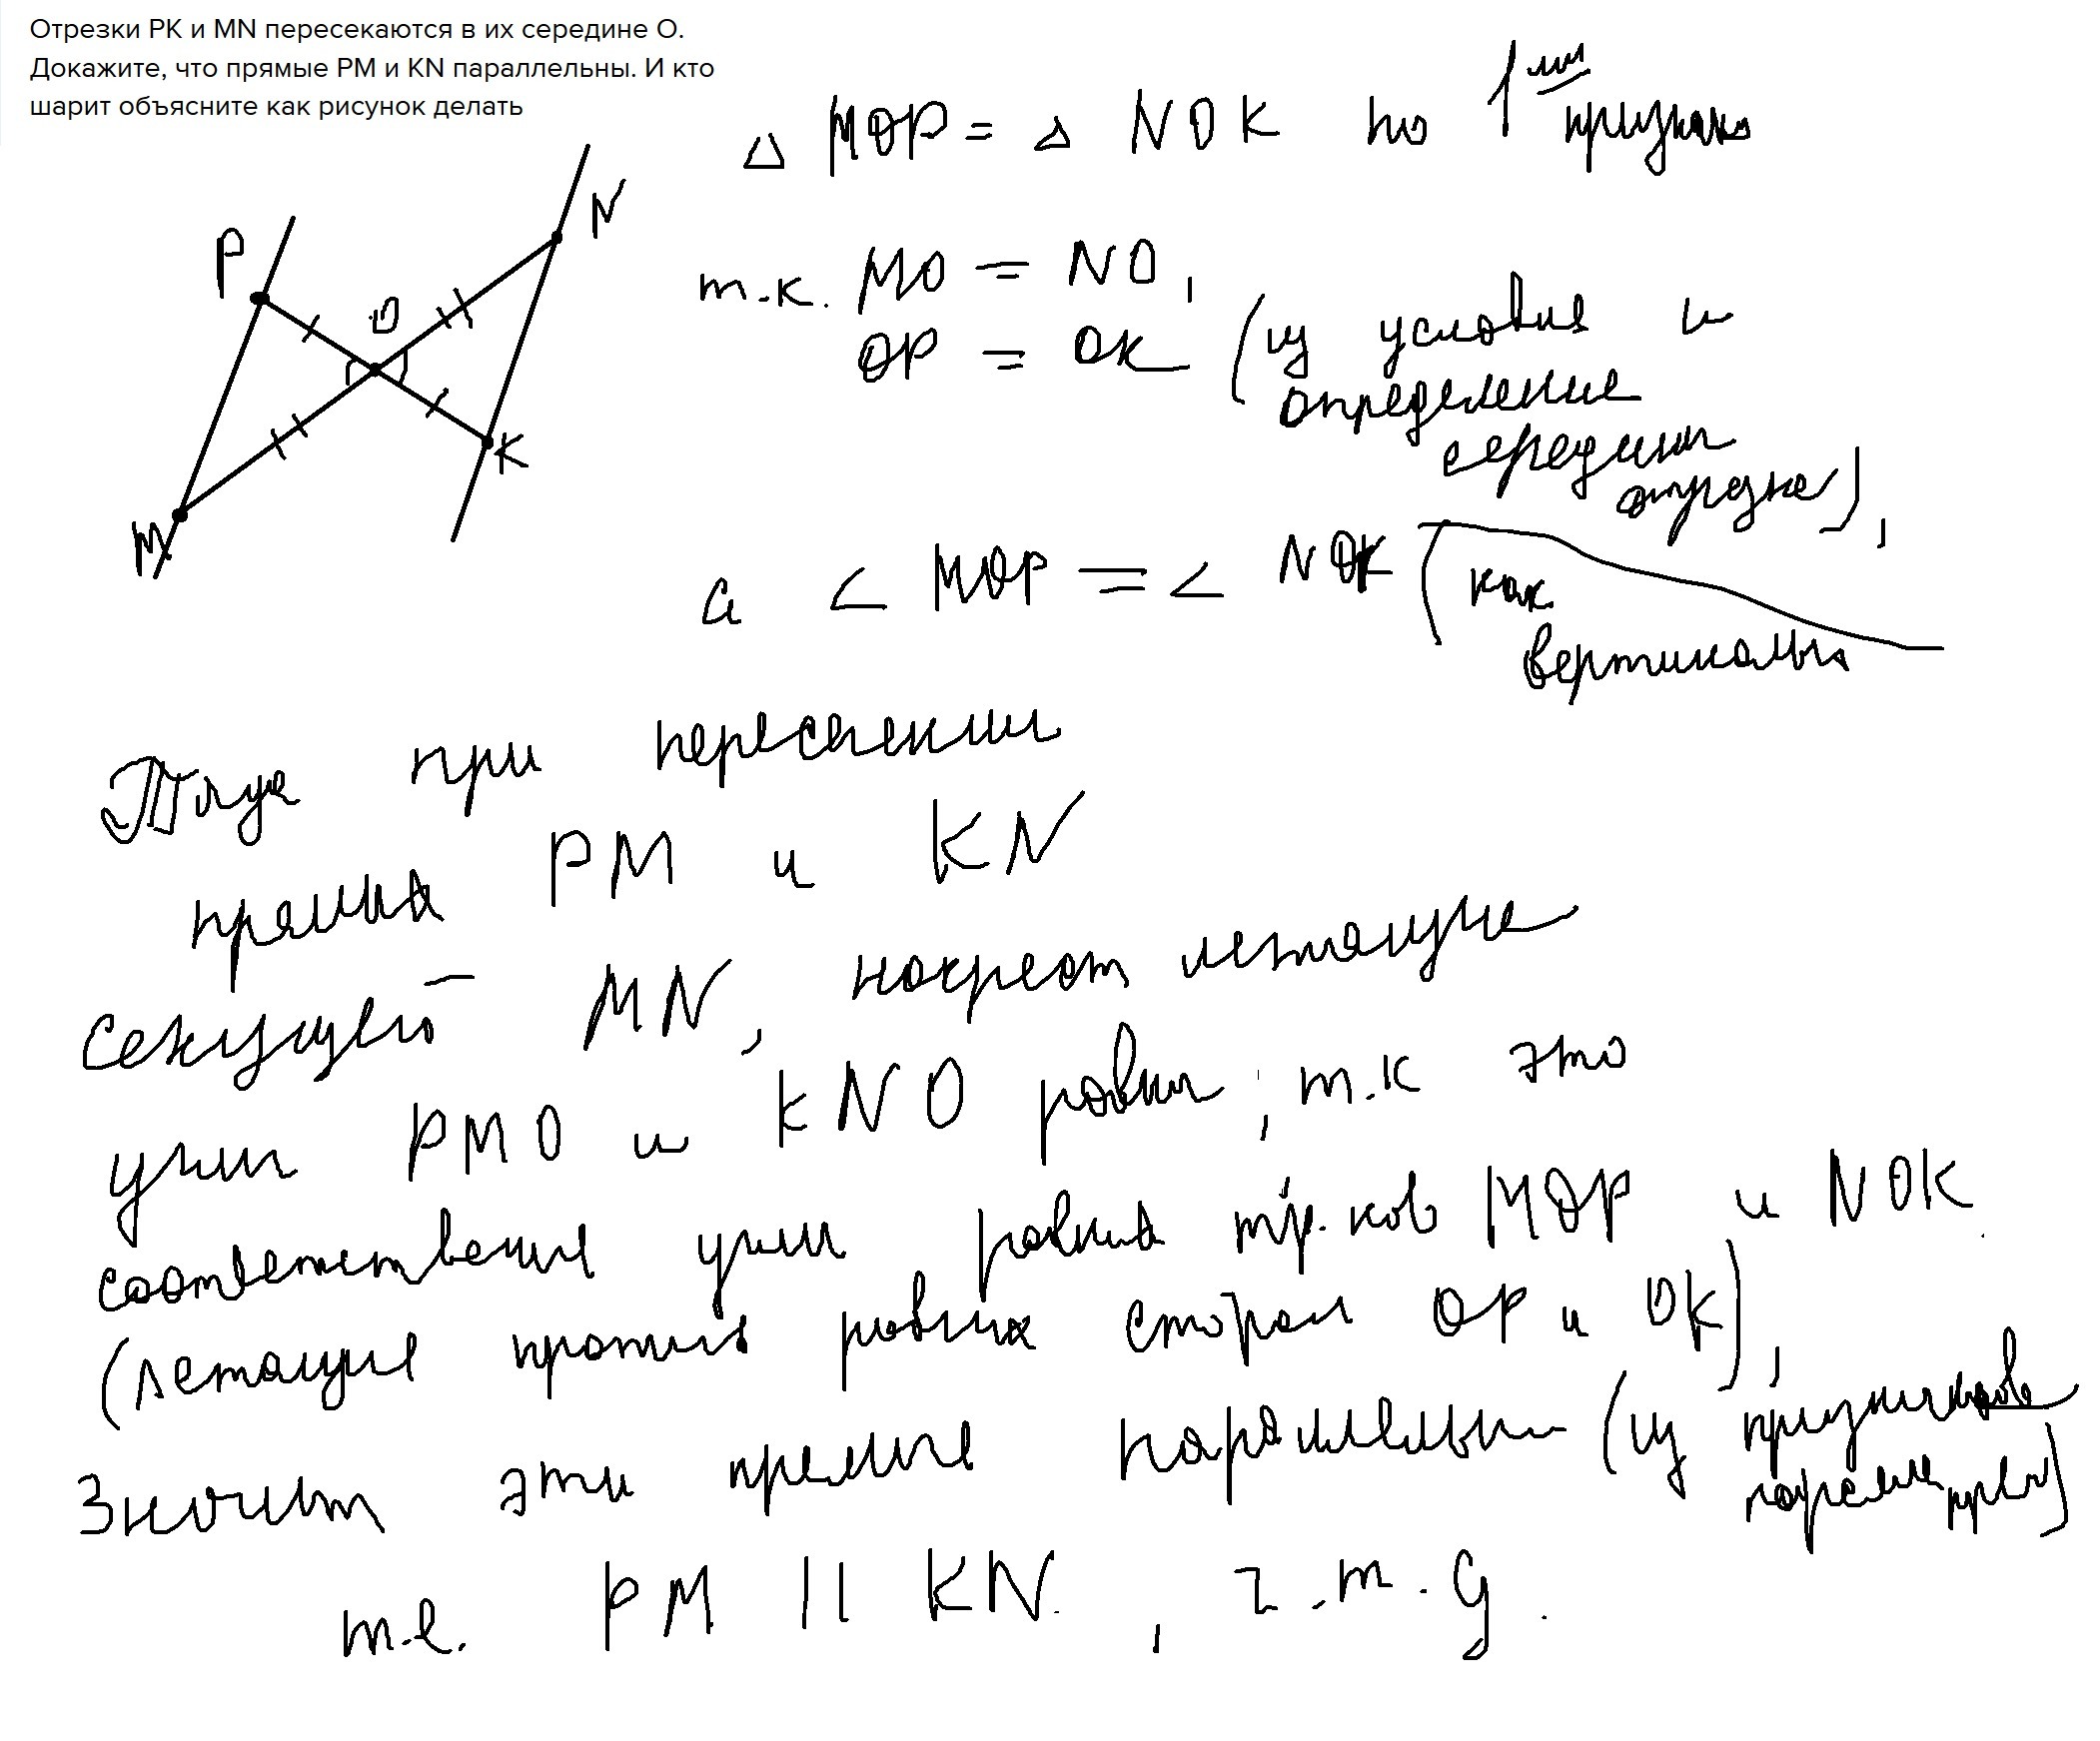 Отрезки РК и MN пересекаются в их середине О.
Докажите, что прямые РМ и KN параллельны. И кто
шарит объясните как рисунок делать
P
N
O
K
M
△ MOP = △ NOK по 1-му признаку
т.к. MO = NO,
OP = OK (из условия и
определения
середины
отрезка),
а < MOP = < NOK (как
вертикальн
Тогда при пересечении
прямых PM и KN
секущей MN, накрест лежащие
углы PMO и KNO равны, т.к это
соответственные углы равных тр-ков MOP и NOK
(лежащие против равных сторон OP и OK),
Значит эти прямые параллельны (из признаков
паралл прям)
т.е. PM || KN, ч.т.д.